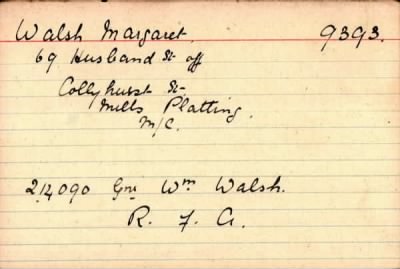 Walsh Margaret. 9393.
69 Husband St off
Collyhurst St.
Mills Platting.
M/C.
214090 Gnr Wm Walsh.
R. F. A.